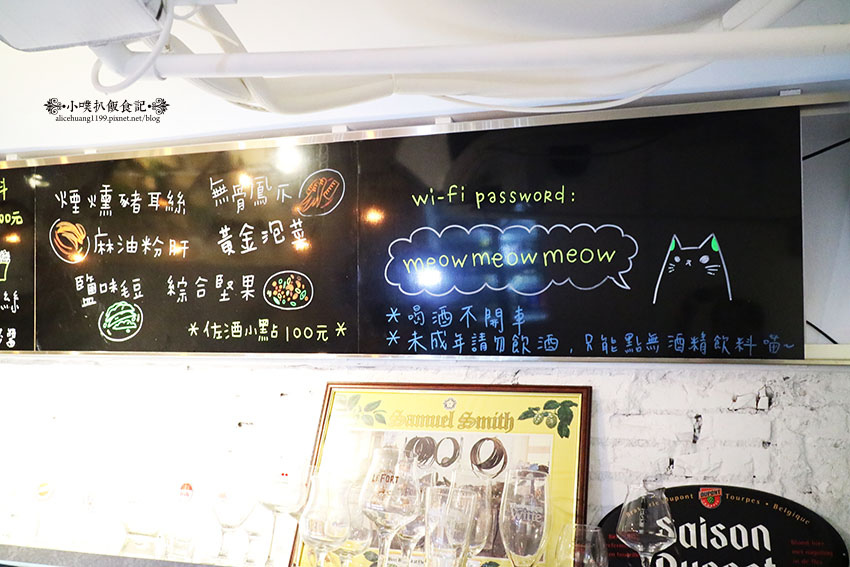 小噗扒飯食記
alicehuang1199.pixnet.net/blog
煙燻豬耳絲 無骨鳳爪
麻油粉肝 黃金泡菜
鹽味毛豆 綜合堅果
*佐酒小點100元*
wi-fi password:
meowmeowmeow
*喝酒不開車
*未成年請勿飲酒，只能點無酒精飲料喵~
料
00元
絲
醬
Samuel Smith
LEFORT
Wine
Dupont Tourpes - Belgique
Saison
Dupont